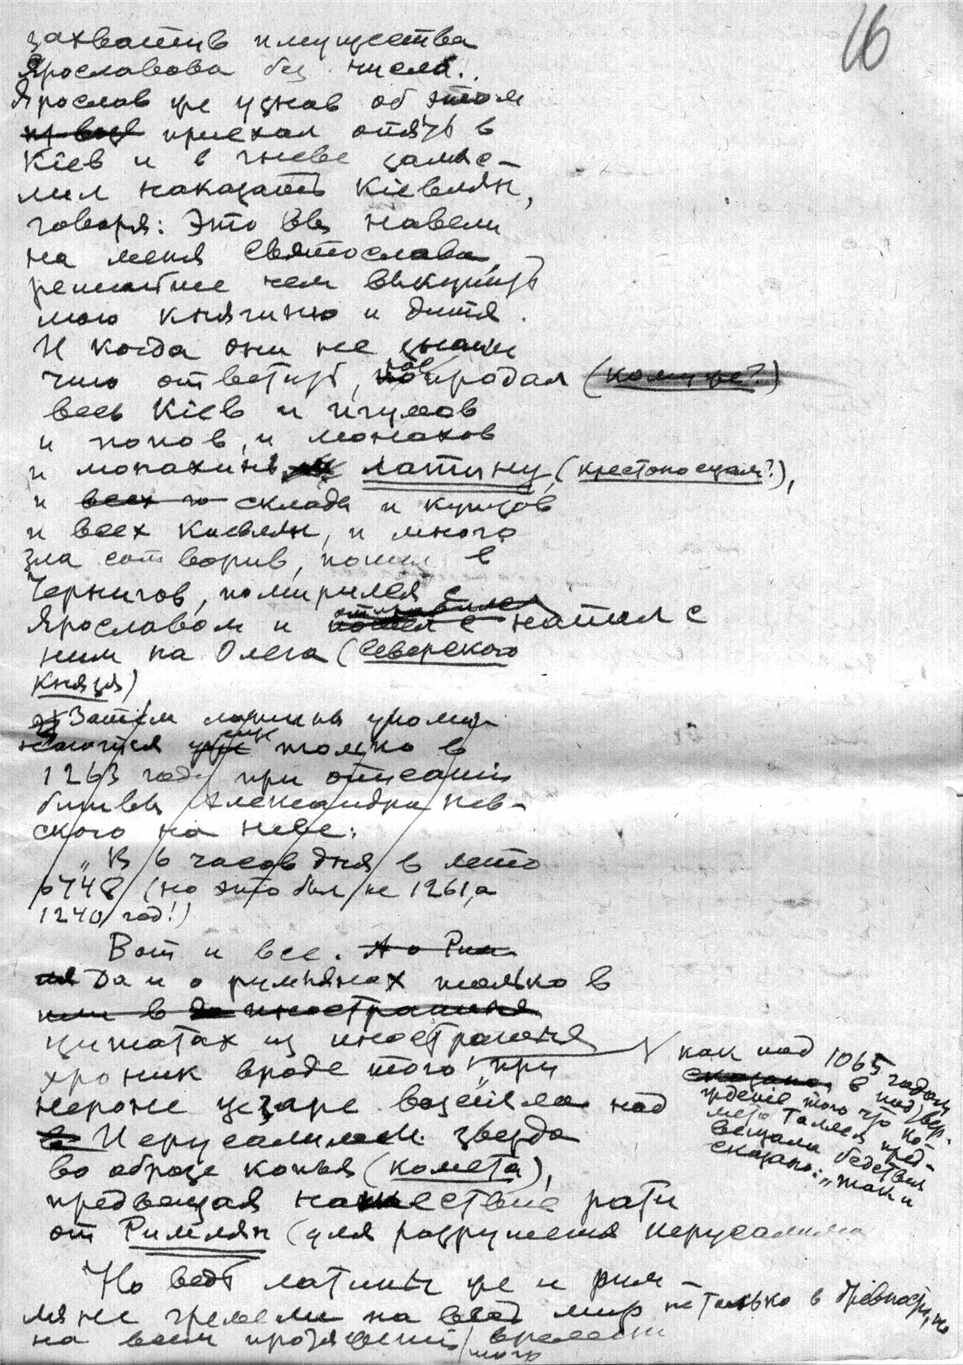 16
захватив имущества
Ярославова без числа..
Ярослав же узнав об этом
приехал опять в
Кіев и в гневе замыс-
лил наказать Кіевлян,
говоря: Это вы навели
на меня Святослава,
решайте чем выкупить
мою княгиню и дитя.
И когда они не знали
что ответить, попродал (кому же?)
весь Кіев и игумов
и попов, и монахов
и монахинь латину, (крестоносцам?),
и всех то склада и купцов
и всех Киевлян, и много
зла сотворив, пошел в
Чернигов, помирился с
отправился
Ярославом и пошел с напал с
ним на Олега (Северского
Князя)
Затем латины упоми-
наются уже еще только в
1263 году при описании
битвы Александра Нев-
ского на Неве:
„В 6 часов дня в лето
6748 (но это был не 1261, а
1240 год!)
Вот и все. А о Рим
Да и о римлянах только в
или в иностранных
цитатах из иностранных
хроник вроде того, при
Нероне цезаре возсияла над
Иерусалимом звезда
во образе копья (комета),
предвещая нашествие рати
от Римлян (для разрушения Иерусалима
как под 1065 годом
сказано в подтвер-
ждение того что ко-
мета Галлея пред-
вещала бедствия
сказано: „так и
Но ведь латины же и рим-
ляне гремели на весь мир не только в древности, но
на всем протяжении времени